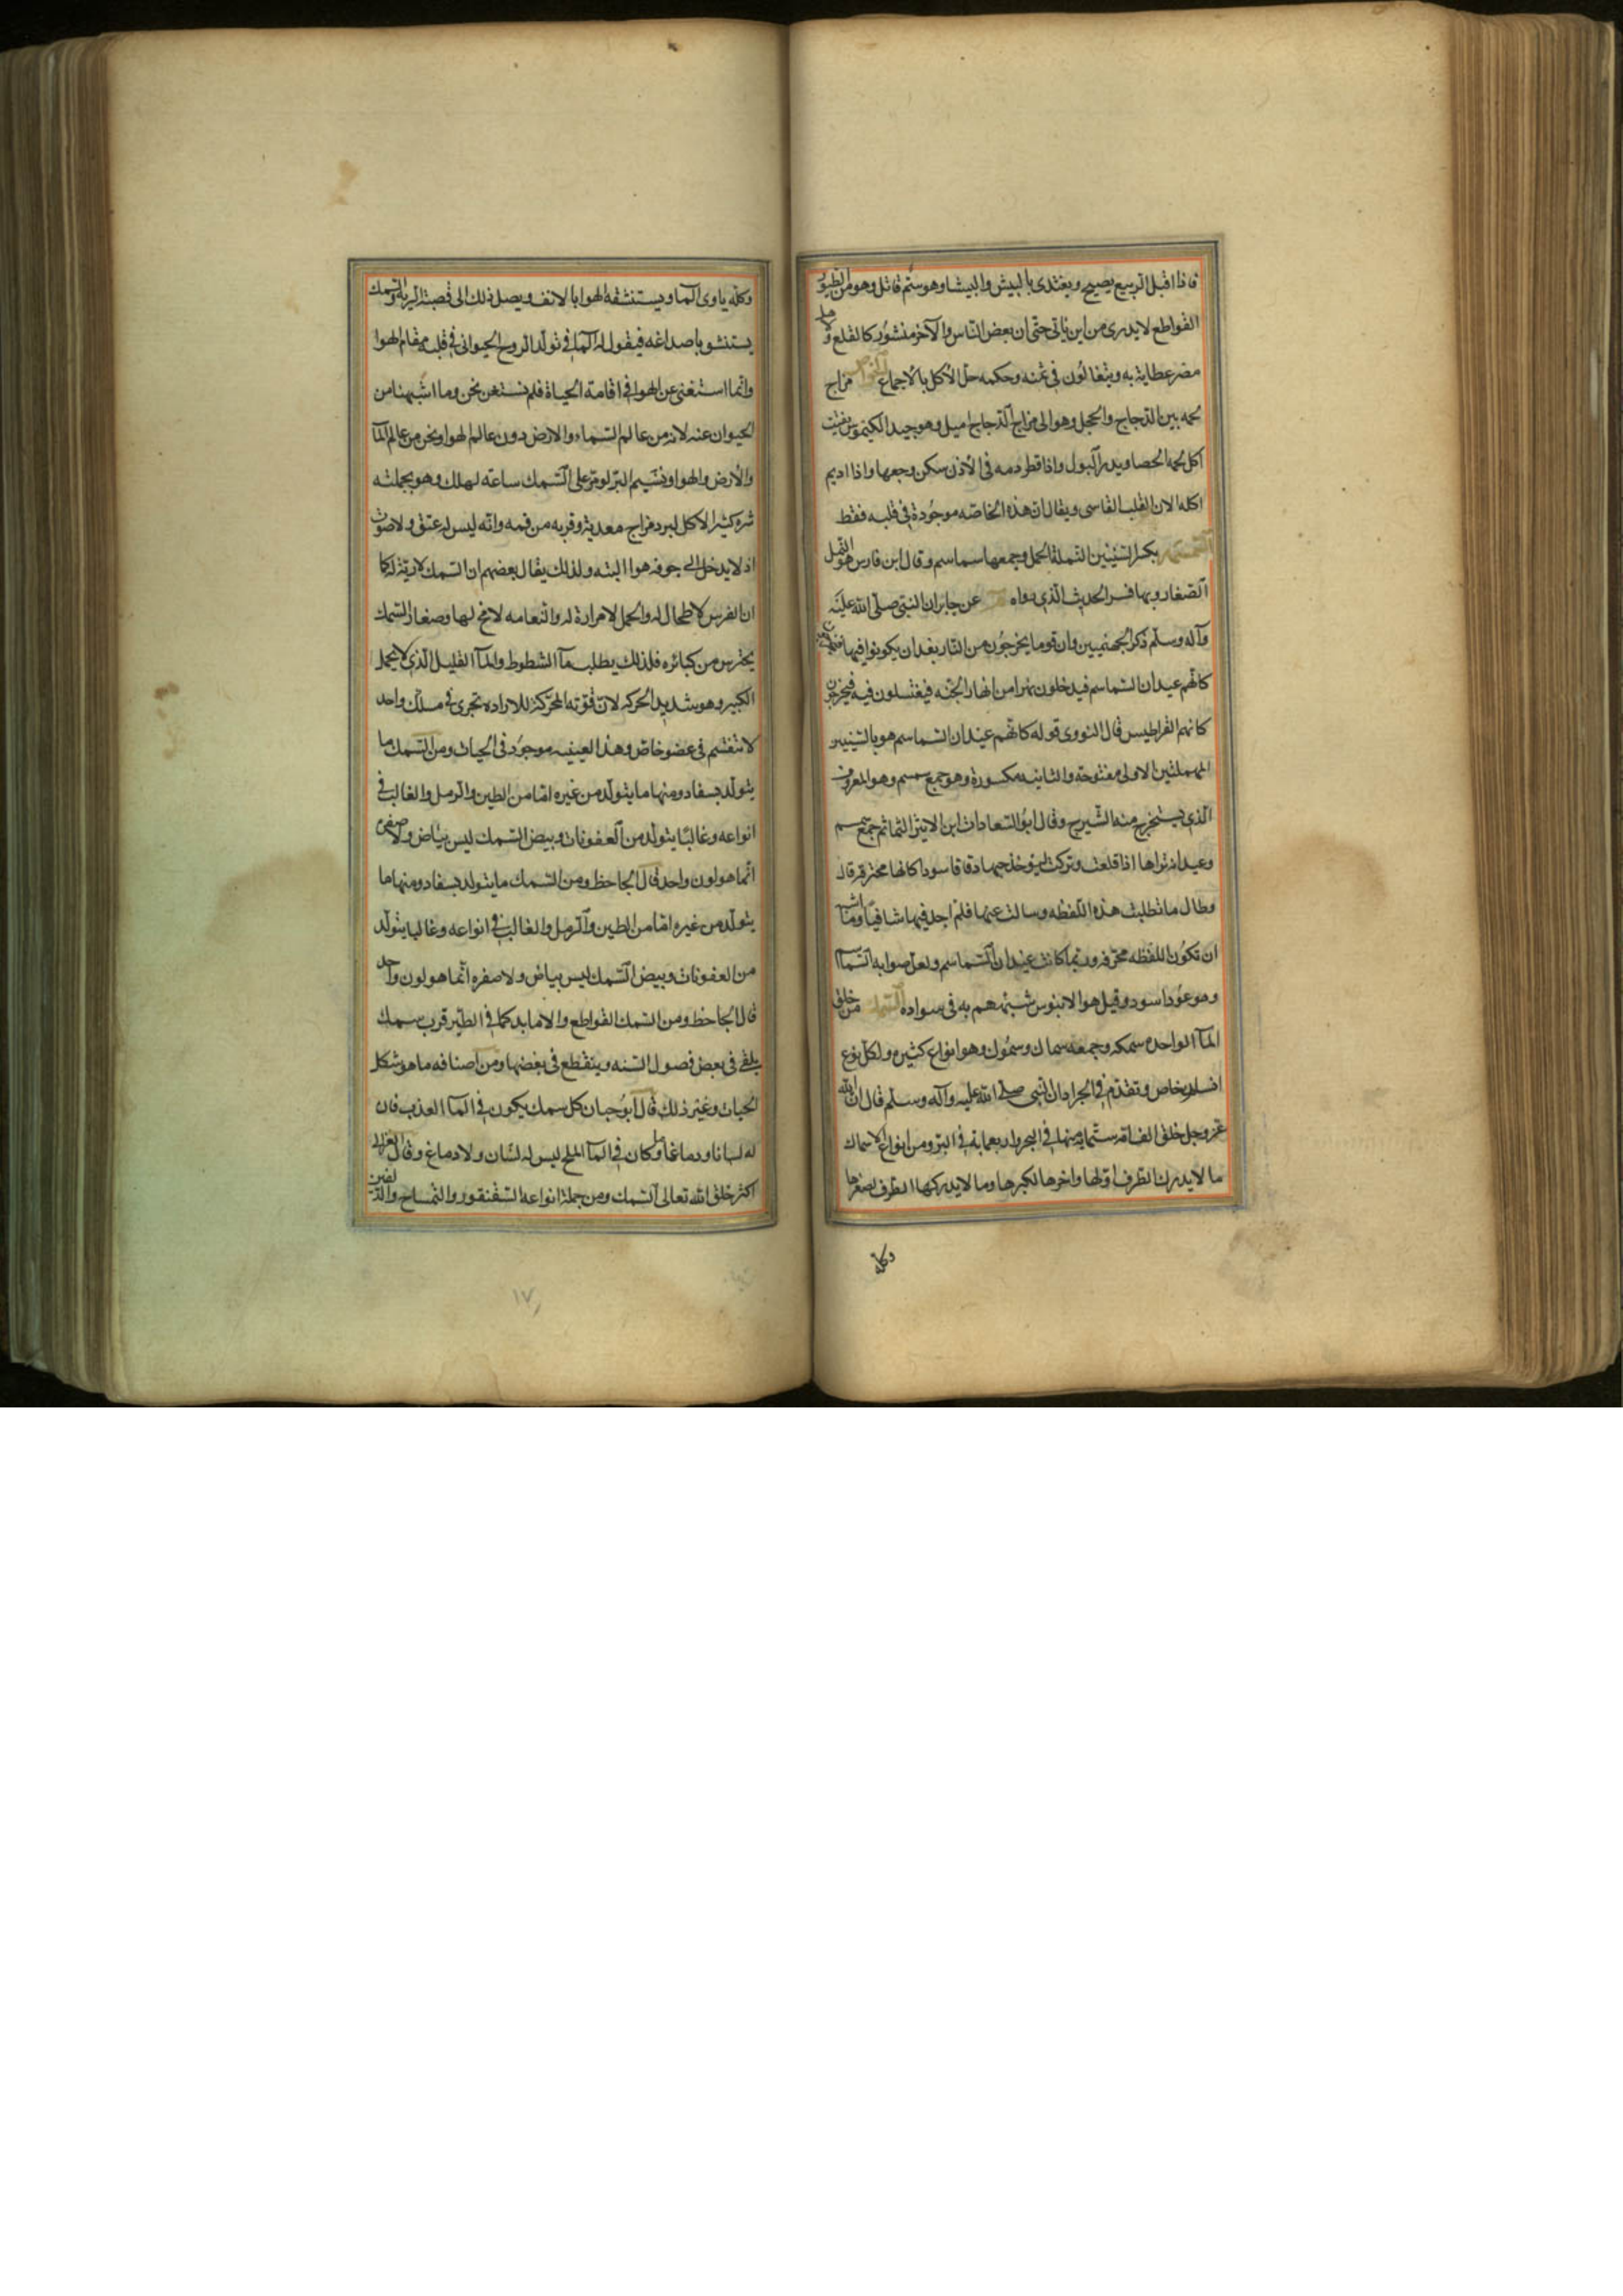 فاذا اقبل الربيع يصيح ويغتدى بالبيش والبيشا وهو ستم قاتل وهو من الطيور
القواطع لا يدرى من اين ياتى حتى ان بعض الناس والآخر منشور كالقلع واهل
مضر عطاية به ويتغالون فى ثمنه وحكمه حل الاكل بالاجماع الخواص مزاج
لحمه بين الدجاج والحجل وهو الى مزاج الدجاج اميل وهو جيد الكيموس يفتت
اكل لحمه الحصا ويدر البول واذا قطر دمه فى الاذن سكن وجعها واذا اديم
اكله الان القلب القاسى ويقال ان هذه الخاصه موجودة فى قلبه فقط
السمسمه بكسر السينين النملة الحمل وجمعها سماسم وقال ابن فارس هو النمل
الصغار وبها فسر الحديث الذى رواه عن جابر ان النبى صلى الله عليه
وآله وسلم ذكر الجهنميين وان قوما يخرجون من النار بعد ان يكونوا فيها
كانهم عيدان السماسم فيدخلون نهرا من انهار الجنه فيغتسلون فيه فيخرجون
كانهم القراطيس قال النووى قوله كانهم عيدان السماسم هو بالسينين
المهملتين الاولى مفتوحة والثانيه مكسورة وهو جمع سمسم وهو المعروف
الذى يستخرج منه الشيرج وقال ابو السعادات ابن الاثير الثماثم جمع سمسم
وعيدانه تراها اذا قلعت وتركت ليوخذ حبها دقاقا سودا كانها محترقه قال
وطال ما تطلبت هذه اللفظه وسالت عنها فلم اجد فيها شافيا وما اشبه
ان تكون اللفظه محرفه وربما كانت عيدان السماسم ولعل صوابه السماسم
وهو عود اسود وقيل هو الابنوس شبههم به فى سواده السمك من خلق
المآ الواحده سمكه وجمعه سماك وسموك وهو انواع كثيره ولكل نوع
اسم خاص وتقدم فى الجراد ان النبى صلى الله عليه وآله وسلم قال ان الله
عز وجل خلق الف امه ستمايه منها فى البحر واربعمايه فى البر ومن انواع الاسماك
ما لا يدرك الطرف اولها واخرها لكبرها وما لا يدركها الطرف لصغرها
وكله
وكله ياوى المآ ويستنشقه الهوا بالانف ويصل ذلك الى قصبة الريه والسمك
يستنشق باصداغه فيقول له المآ فى تولد الروح الحيوانى فى قلبه مقام الهوا
وانما استغنى عن الهوا فى اقامة الحياة فلم نستغن نحن وما اشبهنا من
الحيوان عنه لانه من عالم السماء والارض دون عالم الهوا ونحن من عالم المآ
والارض والهوا ونسيم البر لو مر على السمك ساعه لهلك وهو بجملته
شره كثير الاكل لبرد مزاج معدته وقربه من فمه وانه ليس له عنق ولا صوت
اذ لا يدخل الى جوفه هوا البته ولذلك يقال بعضهم ان السمك لا ريه له كما
ان الفرس لا طحال له والجمل لا مرارة له والنعامه لا مخ لها وصغار السمك
يحترس من كبائره فلذلك يطلب مآ الشطوط والمآ القليل الذى لا يحمل
الكبير وهو شديد الحركه لان قوته المحركة للاراده تجرى فى مسلك واحد
لا تنقسم فى عضو خاص وهذا بعينيه موجود فى الحيات ومن السمك ما
يتولد بسفاد ومنها ما يتولد من غيره اما من الطين والرمل والغالب فى
انواعه وغالبا يتولد من العفونات وبيض السمك ليس بياض ولا صفره
انما هو لون واحد قال الجاحظ ومن السمك ما يتولد بسفاد ومنها ما
يتولد من غيره اما من الطين والرمل والغالب فى انواعه وغالبا يتولد
من العفونات وبيض السمك ليس بياض ولا صفره انما هو لون واحد
قال الجاحظ ومن السمك القواطع والاوابد كما فى الطير قرب سمك
يلقى فى بعض فصول السنه وينقطع فى بعضها ومن اصنافه ما هو شكل
الحيات وغير ذلك قال ابو حيان كل سمك يكون فى المآ العذب فان
له لسانا ودماغا وما كان فى المآ الملح ليس له لسان ولا دماغ وقال الغزالى
اكثر خلق الله تعالى السمك ومن جملة انواعه السقنقور والتمساح والدلفين
١٧